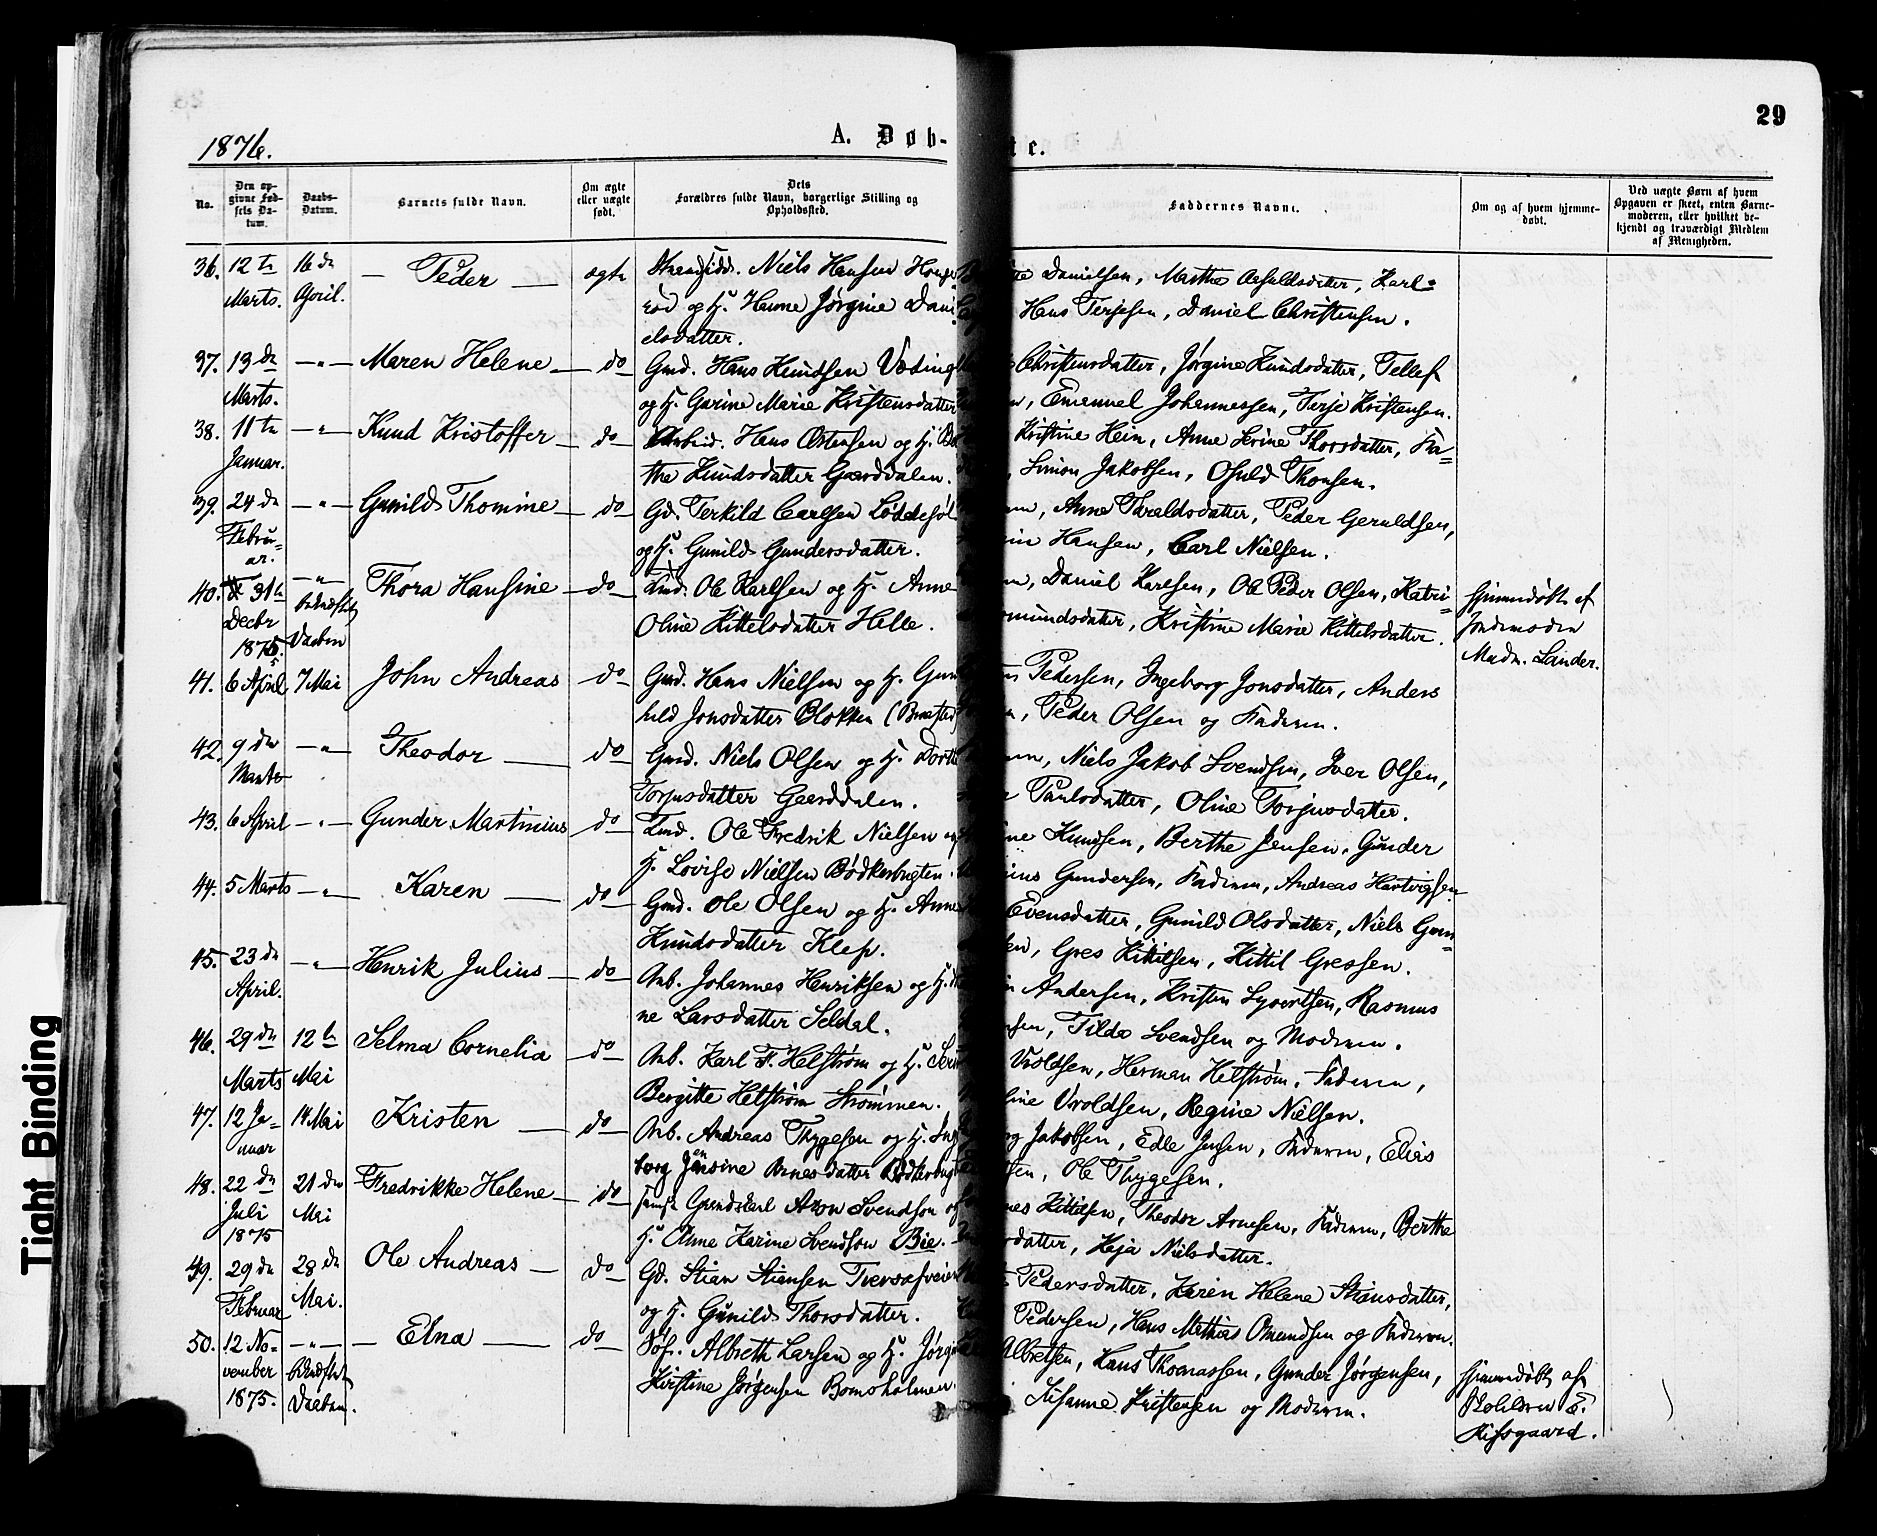 29
1876.
A. Døb-
te.
No.
Den op-
givne Fød-
sels Da-
tum.
Daabs-
Datum.
Barnets fulde Navn.
Om ægte
eller uægte
født.
Dets
Forældres fulde Navn, borgerlige Stilling og
Opholdssted.
Faddernes Navne.
Om og af hvem hjemme-
døbt.
Ved uægte Børn af hvem
Opgaven er skeet, enten Barne-
moderen, eller hvilket be-
kjendt og troværdigt Medlem
af Menigheden.
36. 12te Marts. 16de April. — Peder — ægte
Niels Hansen
og H. Hanne Jørgine Dani
elsdatter.
Danielsen, Marthe Osufsdatter, Karl
Hans Terjesen, Daniel Christensen.
37. 13de Marts. —"— Maren Helene — do
Gmd. Hans Knudsen Veding
og H. Gurine Marie Kristensdatter
Christensdatter, Jørgine Knudsdatter, Tellef
Emanuel Johannessen, Terje Kristensen.
38. 11te Januar. —"— Knud Kristoffer — do
Arbeid. Hans Ostensen og H.
the Knudsdatter Gærddalen.
Kristine Hein, Anne Serine Thorsdatter, Fa=
Simon Jakobsen, Osuld Thorsen.
39. 24de Febru=
ar. —"— Gunild Thomine — do
Gd. Terkild Carlsen Løddesøl
og H. Gunild Gundersdatter.
Anne Tareldsdatter, Peder Geruldsen,
Hansen, Carl Nielsen.
40. 31te Decbr 1875. —"—
Vaaben
Thora Hansine — do
Ole Karlsen og H. Anne
Oline Kittelsdatter Helle.
Daniel Karlsen, Ole Peder Olsen, Katri=
mundsdatter, Kristine Marie Kittelsdatter.
Hjemmedøbt af
Jordemoder
Mad. Sander.
41. 6 April 7 Mai John Andreas do
Gmd. Hans Nielsen og H. Gun
hild Jonsdatter Blokken (Braastad)
Pedersen, Ingeborg Jonsdatter, Anders
Peder Olsen og Faderen.
42. 9de Marts —"— Theodor — do
Gmd. Niels Olsen og H. Dorth
Torjusdatter Gærddalen.
Niels Jakob Svendsen, Iver Olsen,
Paulsdatter, Oline Torjusdatter.
43. 6 April —"— Gunder Martinius do
Ole Fredrik Nielsen og
H. Lovise Nielsen Bødkerbugten.
Knudsen, Berthe Jensen, Gunder
Gundersen, Faderen, Andreas Hartvigsen
44. 5 Marts —"— Karen — do
Gmd. Ole Olsen og H. Anne
Knudsdatter Klep.
Evensdatter, Gunild Olsdatter, Niels Gun=
Gres Kittilsen, Kittil Gressen.
45. 23de April. —"— Henrik Julius — do
Arb. Johannes Henriksen og H.
ne Larsdatter Seldal.
Andersen, Kristen Syvertsen, Rasmus
Tilde Svendsen og Moderen.
46. 29de Marts 12te Mai Selma Cornelia do
Arb. Karl F. Helstrøm og H.
Bergitte Helstrøm Strømmen.
Vroldsen, Herman Helstrøm, Faderen,
Vroldsen, Regine Nielsen.
47. 12 Ja=
nuar 14 Mai Kristen — do
Arb. Andreas Thygesen og H. Inge
borg Jensine Arnesdatter Bødkerbugt
Jakobsen, Edle Jensen, Faderen, Elias
Ole Thygesen.
48. 22de Juli 1875 21de Mai Fredrikke Helene — do
Aron Svendson og
H. Anne Karine Svendson Bie.
Kittilsen, Theodor Arnesen, Faderen, Berthe
datter, Kaja Nielsdatter.
49. 29de Februar 28de Mai. Ole Andreas — do
Gd. Stian Stiansen Tversafveien
og H. Gunild Thorsdatter.
Pedersdatter, Karen Helene Stiansdatter,
Pedersen, Hans Mathias Omundsen og Faderen.
50. 12 No=
vember 1875. —"—
Daaben.
— Elna — do
Albreth Larsen og H. Jørgi
Kirstine Jørgensen Bomsholmen
Albretsen, Hans Thomassen, Gunder Jørgensen,
Susanne Kristensen og Moderen.
Hjemmedøbt af
Kirkegaard.
Tight Binding